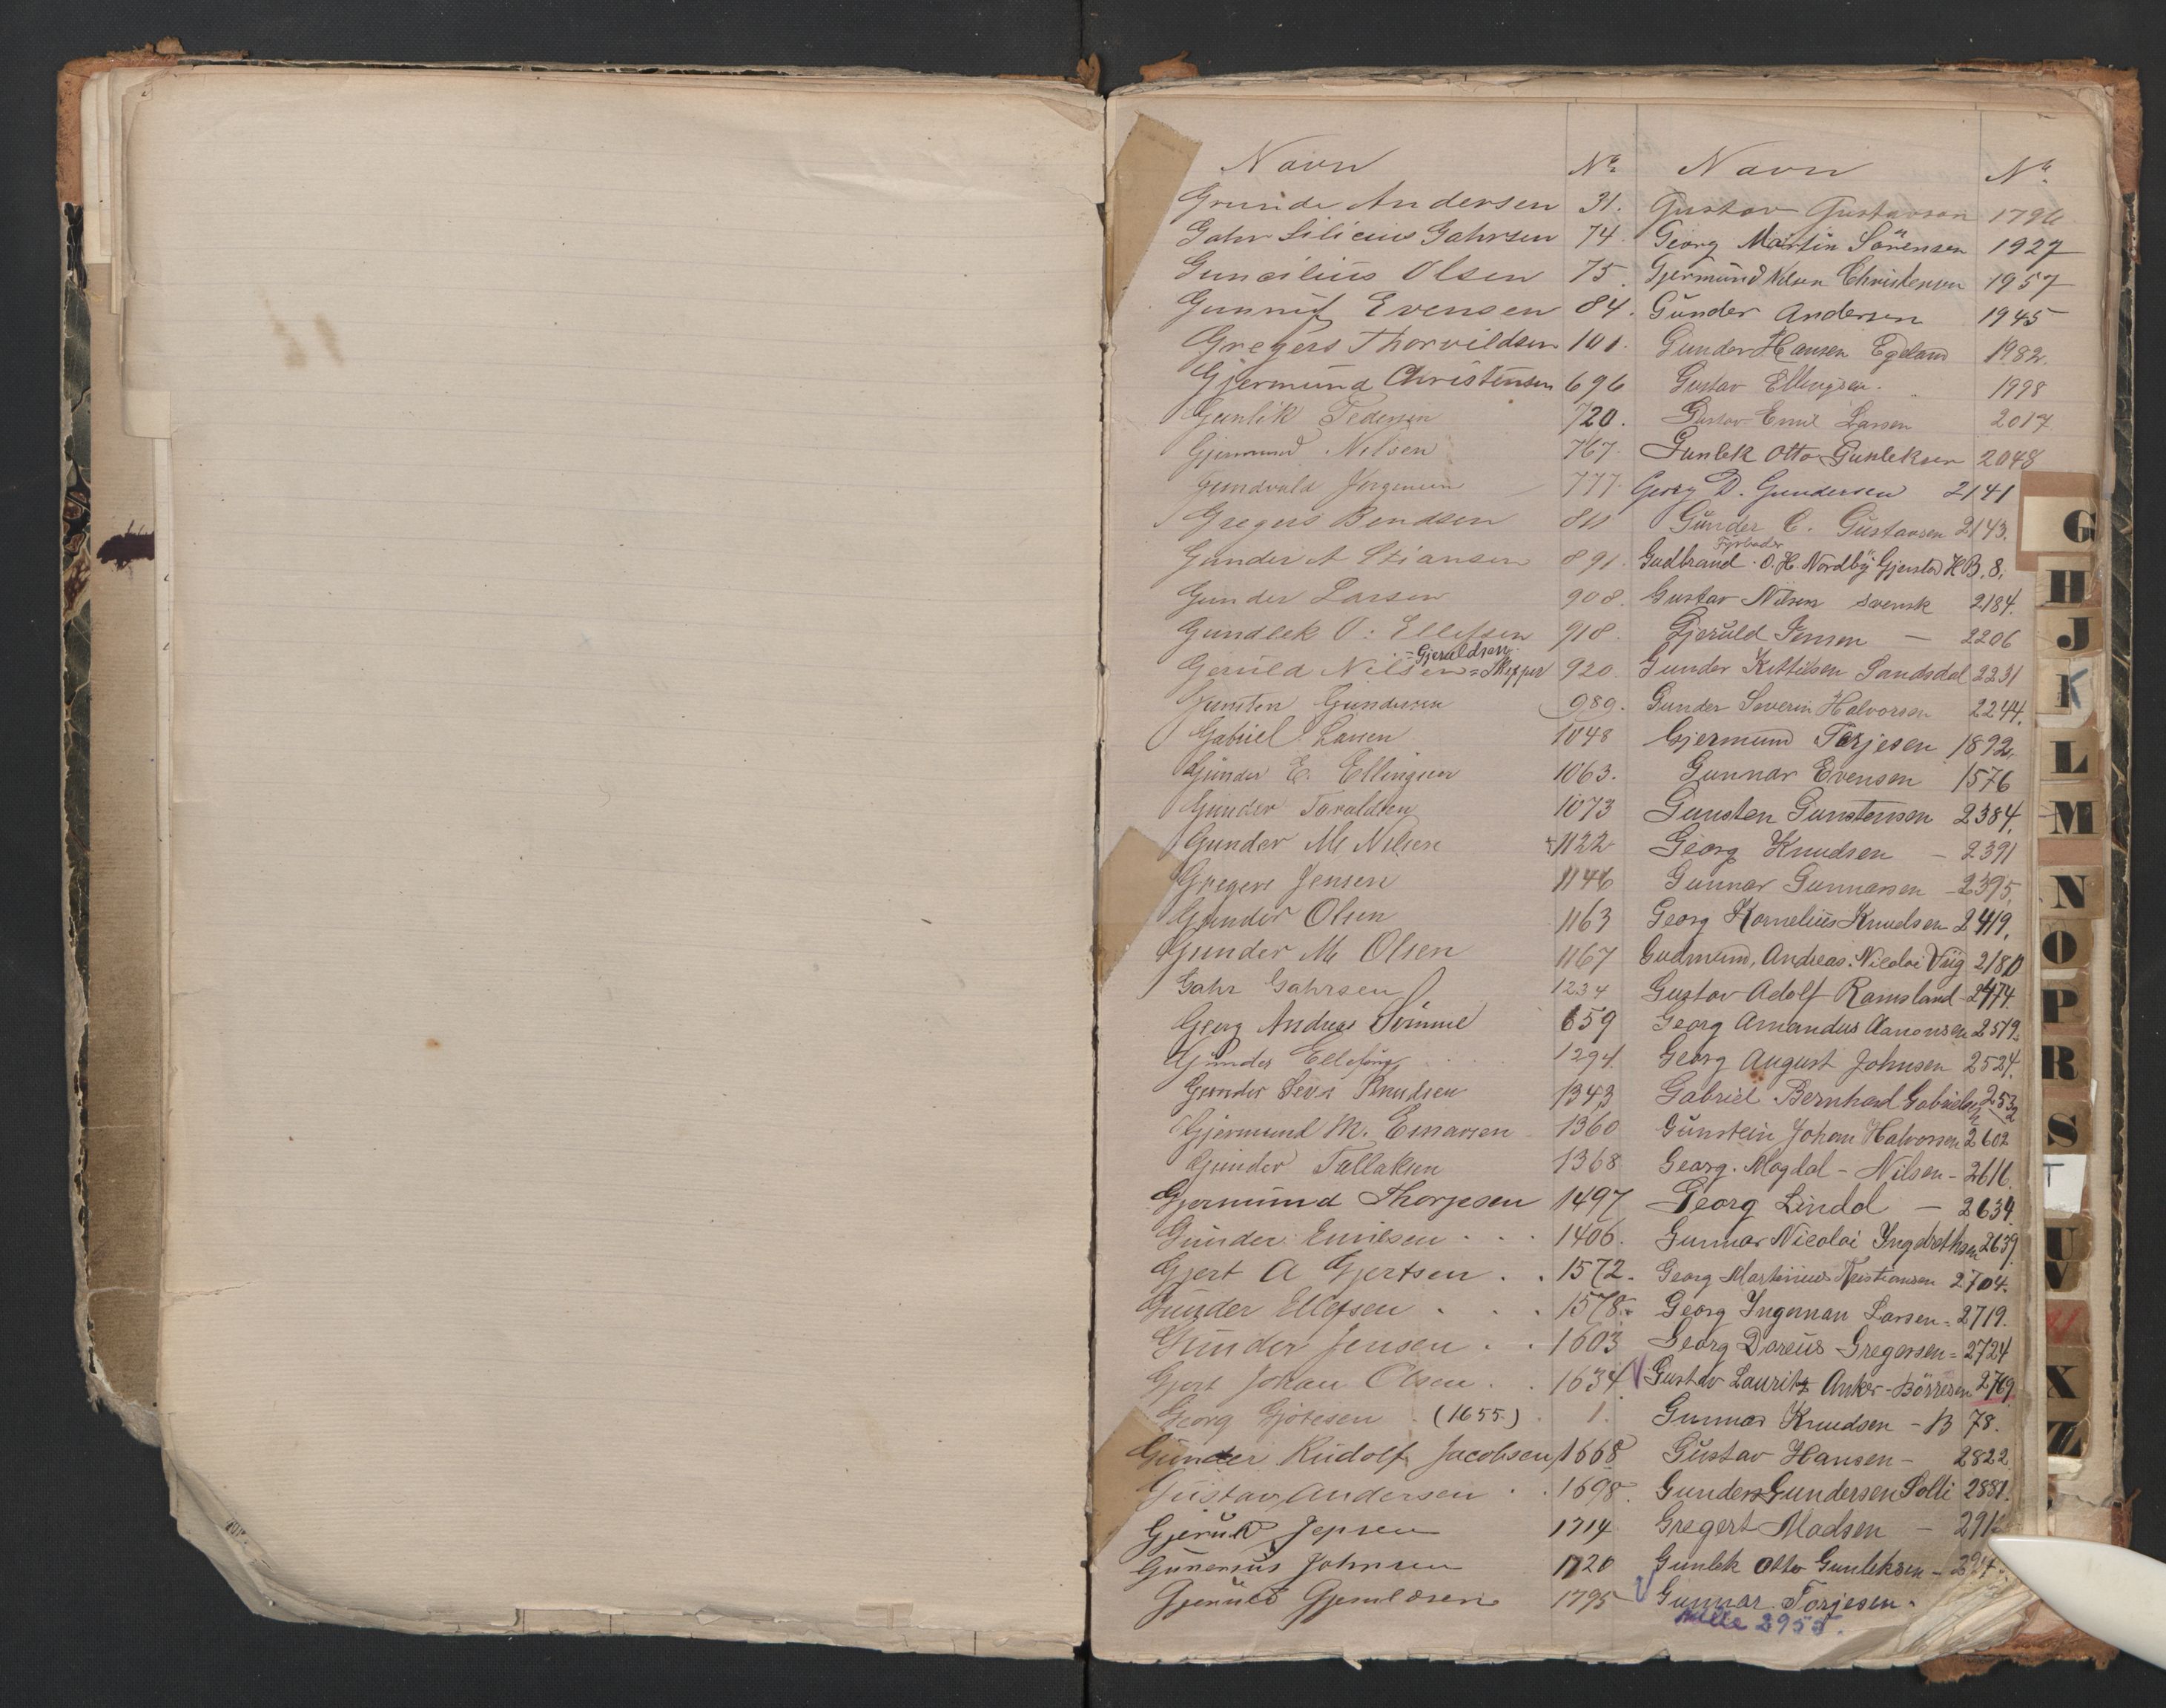 Navn No
Grunde Andersen 31.
Gahr Silicius Gahrsen 74
Guncilius Olsen 75.
Gunnuf Evensen 84.
Gregers Thorvildsen 101.
Gjermund Christensen 696
Gunlik Pedersen 720.
Gjermund Nilsen 767.
Gundvald Jørgensen 777
Gregers Bendsen 811
Gunder A Stiansen 891.
Gunder Larsen 908.
Gundlek O. Ellefsen 918.
= Gjeruldsen
Gjeruld Nilsen = Skipper 920.
Gunsten Gundersen 989.
Gabriel Larsen 1048
Gunder E. Ellingsen 1063.
Gunder Taraldsen 1073
Gunder M Nilsen 1122
Gregers Jensen 1146
Gunder Olsen 1163
Gunder M Olsen 1167
Gahr Gahrsen 1234
Georg Andreas 659
Gunder Ellefsen 1294.
Gunder Knudsen 1343
Gjermund M. Einarsen 1360
Gunder Tallaksen 1368
Gjermund Thorjesen 1497
Gunder Emilsen 1406.
Gjert A Gjertsen 1572.
Gunder Ellefsen 1578.
Gunder Jensen 1603
Gjert Johan Olsen 1634
Georg Gjötesen (1655.) 1.
Gunder Rudolf Jacobsen 1668
Gustav Andersen 1698.
Gjeruld Jepsen 1714
Gunerius Johnsen 1720
Gjeruld Gjeruldsen 1795
Navn No
Gustav Gustavsen 1796
Georg Martin Sörensen 1927
Gjermund Nilsen Christensen 1957
Gunder Andersen 1945
Gunder Hansen Egeland 1982.
Gustav Ellingsen. 1998
Gustav Emil Larsen 2017
Gunlek Otto Gunleksen 2048
Georg D. Gundersen 2141
Gunder C. Gustavsen 2143.
Fyrbøder
Gudbrand O. H. Nordby Gjerstad H B. 8.
Gustav Nilsen svensk 2184.
Gjeruld Jensen — 2206
Gunder Kittilsen Sandsdal 2231
Gunder Severin Halvorsen 2244.
Gjermund Torjesen 1892.
Gunnar Evensen 1576
Gunsten Gunstensen 2384.
Georg Knudsen - 2391
Gunnar Gunnarsen - 2395.
Georg Kornelius Knudsen 2419.
Gudmund, Andreas. Nicolai Viig 2180
Gustav Adolf Ramsland - 2474.
Georg Amandus Aanonsen 2519.
Georg August Johnsen 2524.
Gabriel Bernhard Gabrielsen 2532
Gunstein Johan Halvorsen 2602
Georg. Magdal - Nilsen - 2616.
Georg Lindal - 2634.
Gunnar Nicolai Yngebrethsen 2639.
Georg Martinius Kristiansen 2704.
Georg Ingeman Larsen = 2719.
Georg Dareus Gregersen = 2724
Gustav Lauritz Anker-Börresen 2769.
Gunnar Knudsen - B 78.
Gustav Hansen - 2822
Gunder Gundersen Solli 2881.
Gregert Madsen -
Gunlek Otto Gunleksen -
Gunnar Torjesen.
2955.
G
H
J
K
L
M
N
O
P
R
S
T
U
V
X
Z